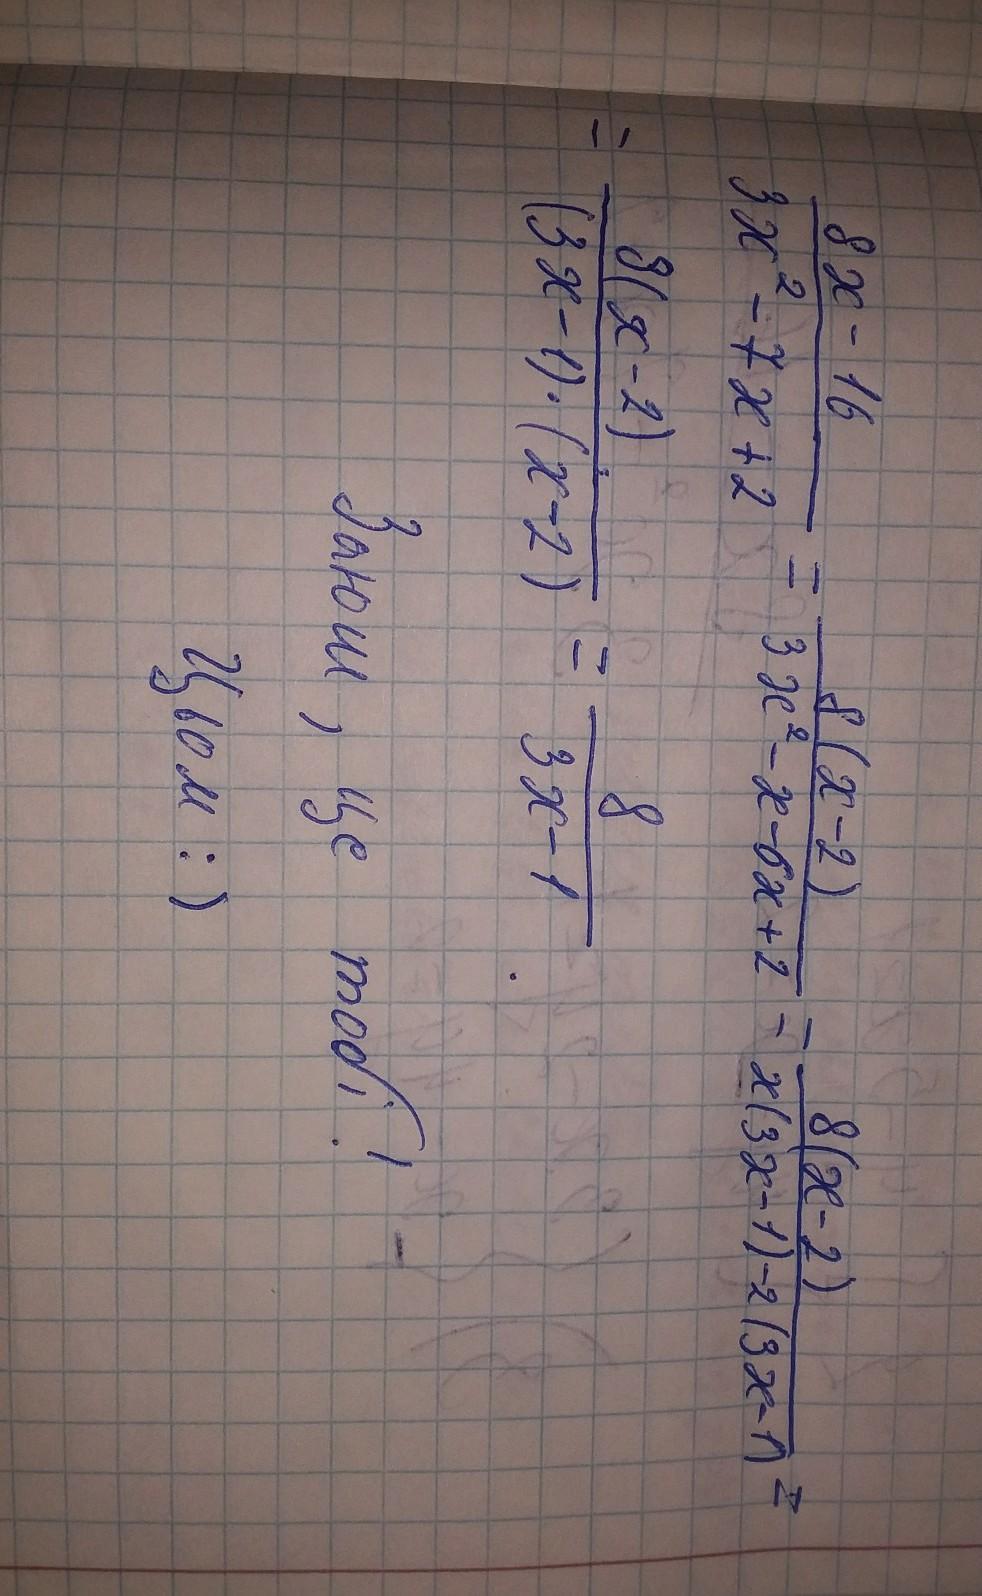 8x - 16 / 3x² - 7x + 2 = 8(x - 2) / 3x² - x - 6x + 2 = 8(x - 2) / x(3x - 1) - 2(3x - 1) =
= 8(x - 2) / (3x - 1) · (x - 2) = 8 / 3x - 1 .
Заюш, це тобі!
Цьом :)